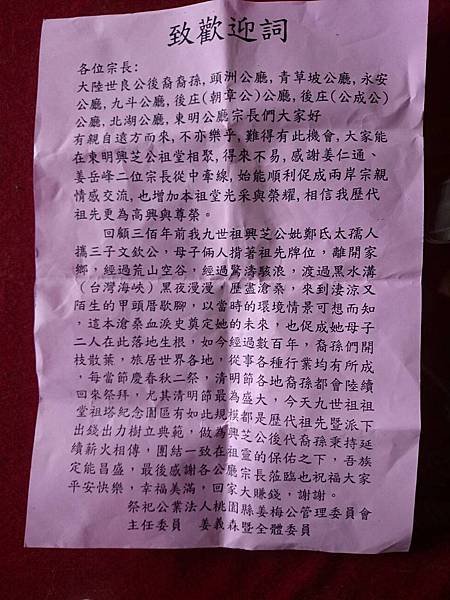 致歡迎詞
各位宗長:
大陸世良公後裔裔孫,頭洲公廳,青草坡公廳,永安
公廳,九斗公廳,後庄(朝章公)公廳,後庄(公成公)
公廳,北湖公廳,東明公廳宗長們大家好
有親自遠方而來,不亦樂乎,難得有此機會,大家能
在東明興芝公祖堂相聚,得來不易,感謝姜仁通、
姜岳峰二位宗長從中牽線,始能順利促成兩岸宗親
情感交流,也增加本祖堂光采與榮耀,相信我歷代
祖先更為高興與尊榮。
回顧三佰年前我九世祖興芝公妣鄭氏太孺人
攜三子文欽公,母子倆人揹著祖先牌位,離開家
鄉,經過荒山空谷,經過驚濤駭浪,渡過黑水溝
(台灣海峽)黑夜漫漫,歷盡滄桑,來到淒涼又
陌生的甲頭厝歇腳,以當時的環境情景可想而知
,這本滄桑血淚史奠定她的未來,也促成她母子
二人在此落地生根,如今經過數百年,裔孫們開
枝散葉,旅居世界各地,從事各種行業均有所成
,每當節慶春秋二祭,清明節各地裔孫都會陸續
回來祭拜,尤其清明節最為盛大,今天九世祖祖
堂祖塔紀念園區有如此規模都是歷代祖先暨派下
出錢出力樹立典範,做為興芝公後代裔孫秉持延
續薪火相傳,團結一致在祖靈的保佑之下,吾族
定能昌盛,最後感謝各公廳宗長蒞臨也祝福大家
平安快樂,幸福美滿,回家大賺錢,謝謝。
祭祀公業法人桃園縣姜梅公管理委員會
主任委員 姜義森暨全體委員